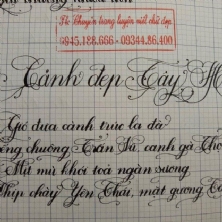 Hc Chuyên trang luyện nét chữ đẹp
0945.188.666 - 09344.86.400
Cảnh đẹp Tây H
Gió đưa cành trúc la đà
chuông Trấn Vũ, canh gà Thọ
Mịt mù khói toả ngàn sương
chày Yên Thái, mặt gương